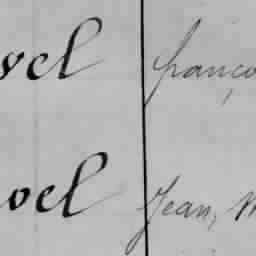 vel franço
oel Jean, M